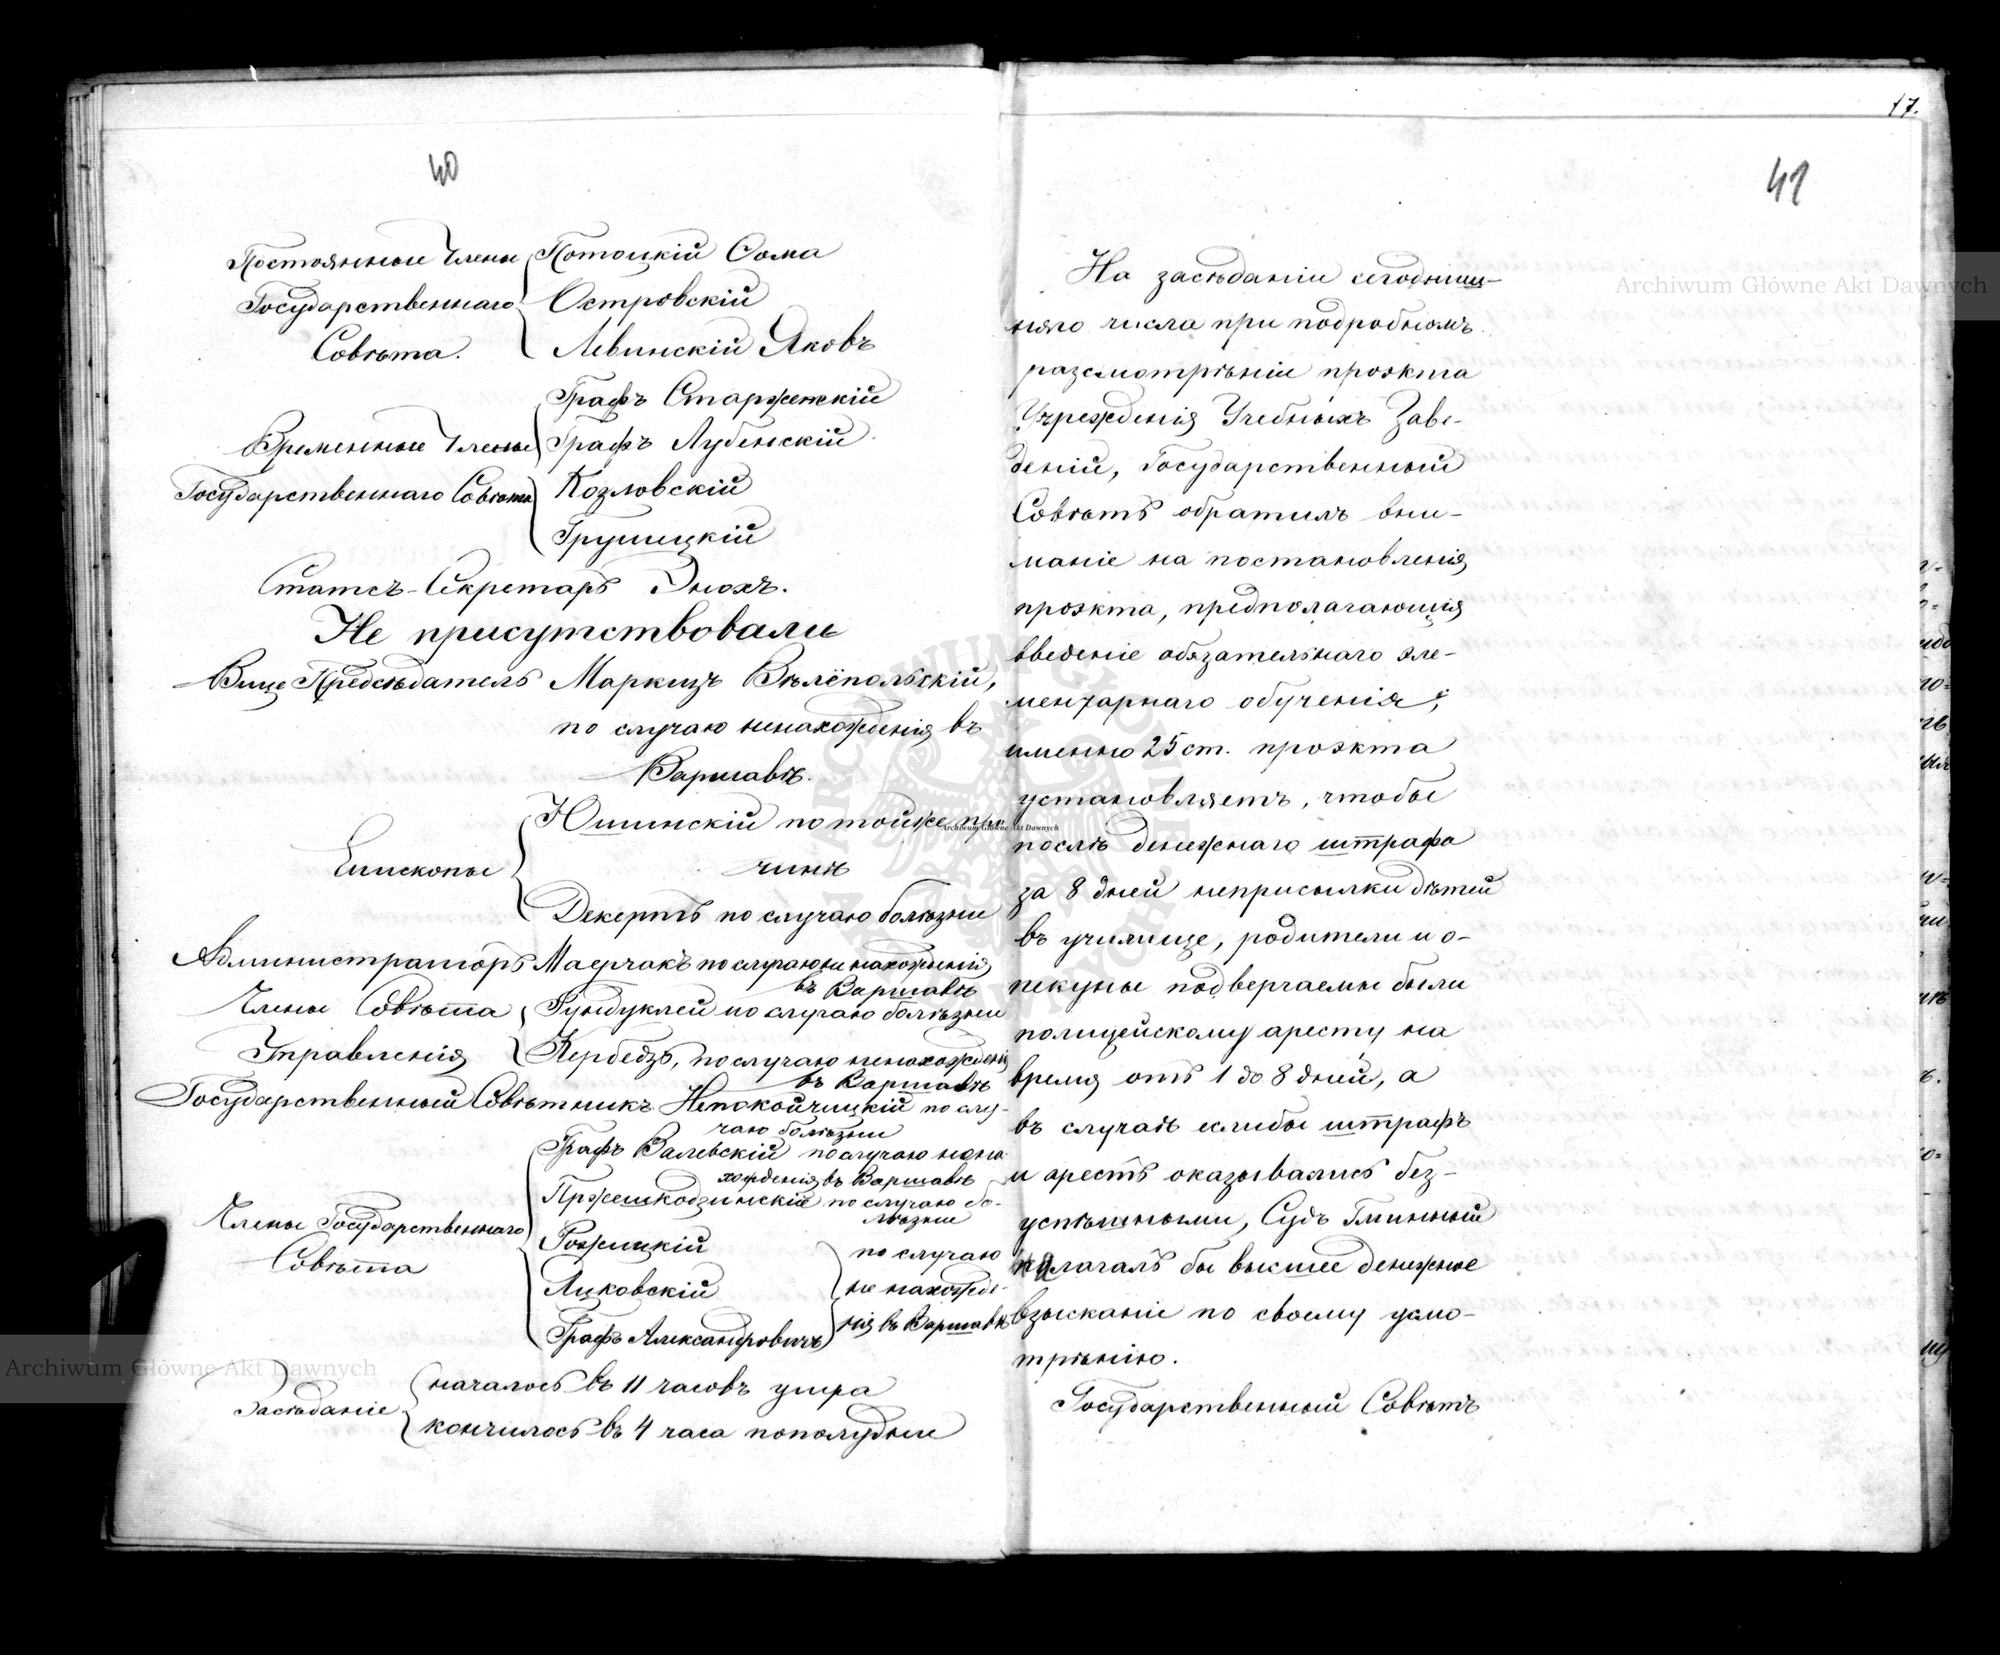 40
Постоянные Члены Потоцкій Ѳома
Государственнаго Островскій
Совѣта. Левинскій Яковъ
Графъ Старженскій
Временные Члены Графъ Лубенскій
Государственнаго Совѣта Козловскій
Грушецкій
Статсъ-Секретарь Энохъ.
Не присутствовали
Вице Предсѣдатель Маркизъ Вѣлёпольскій,
по случаю ненахожденія въ
Варшавѣ.
Юшинскій по той же при
Епископы чинѣ
Декертъ по случаю болѣзни
Администраторъ Маерчакъ по случаю ненахожденія
въ Варшавѣ
Члены Совѣта Гундуклей по случаю болѣзни
Управленія Кербедзъ, по случаю ненахожденія
въ Варшавѣ
Государственный Совѣтникъ Непокойчицкій по слу-
чаю болѣзни
Графъ Валевскій по случаю нена
хожденія въ Варшавѣ
Пржешкодзинскій по случаю бо-
лѣзни
Члены Государственнаго Рожицкій по случаю
Совѣта Лцковскій не нахожде-
Графъ Александровичъ нія въ Варшавѣ
Засѣданіе началось въ 11 часовъ утра
кончилось въ 4 часа пополудни
17.
41
На засѣданіи сегодниш-
няго числа при подробномъ
разсмотрѣніи проэкта
Учрежденія Учебныхъ Заве-
деній, Государственный
Совѣтъ обратилъ вни-
маніе на постановленія
проэкта, предполагающія
введеніе обязательнаго эле-
ментарнаго обученія;
именно 25 ст. проэкта
установляетъ, чтобы
послѣ денежнаго штрафа
за 8 дней неприсылки дѣтей
въ училище, родители и о-
пекуны подвергаемы были
полицейскому аресту на
время отъ 1 до 8 дней, а
въ случаѣ еслибы штрафъ
и арестъ оказывались без-
успѣшными, Судъ Гминный
налагалъ бы высшее денежное
взысканіе по своему усмо-
трѣнію.
Государственный Совѣтъ
Archiwum Główne Akt Dawnych
Archiwum Główne Akt Dawnych
Archiwum Główne Akt Dawnych